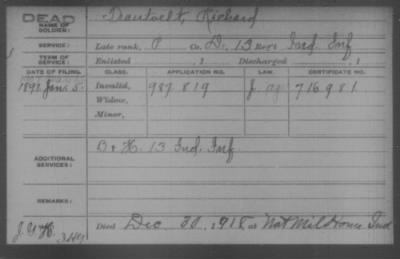 DEAD
NAME OF SOLDIER: Trautvelt, Richard
SERVICE: Late rank, P Co. D, 13 Reg't Ind. Inf
TERM OF SERVICE: Enlisted 1 Discharged , 1
DATE OF FILING. CLASS. APPLICATION NO. LAW. CERTIFICATE NO.
1891 Jan. 5. Invalid, 987 819 J. 716981
Widow,
Minor,
ADDITIONAL SERVICES: B & K. 13 Ind. Inf.
REMARKS:
Died Dec 30, 1918 at Nat Mil Home Ind